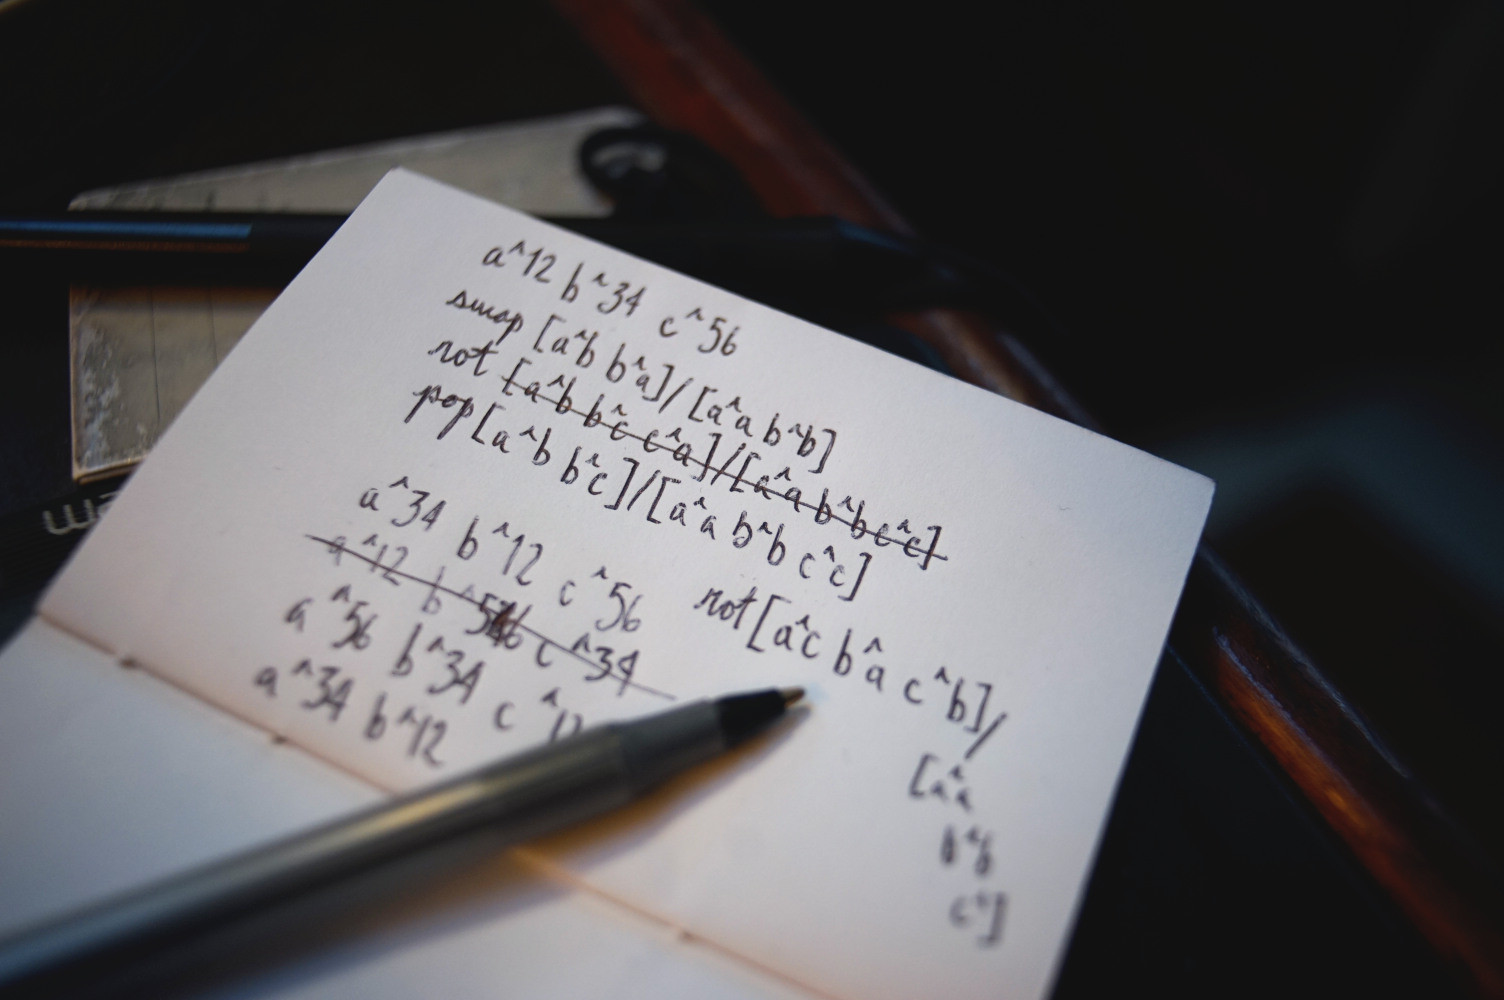 a^12 b^34 c^56
swap [a^b b^a]/[a^a b^b]
not [a^b b^c c^a]/[a^a b^b c^c]
pop [a^b b^c]/[a^a b^b c^c]
a^34 b^12 c^56
a^12 b^56 c^34
a^56 b^34 c^12
a^34 b^12
not [a^c b^a c^b]/
[a^a
b^b
c^]